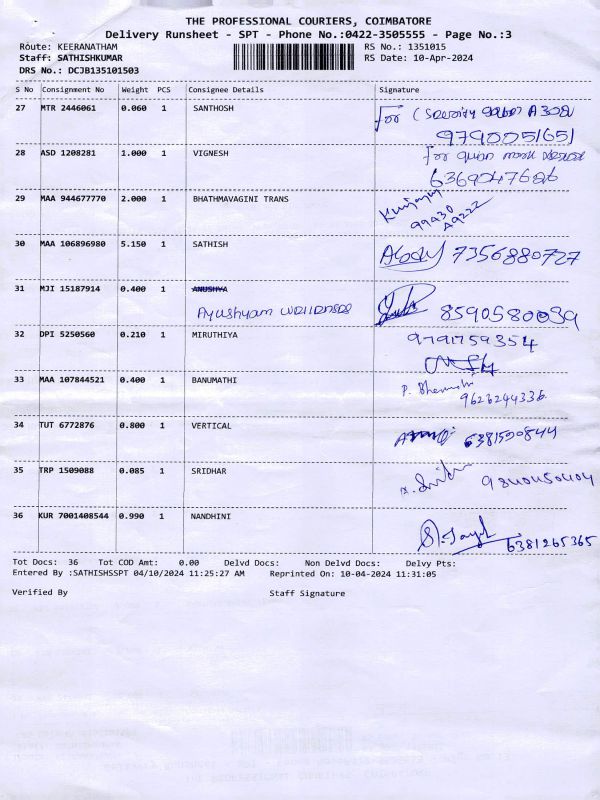 THE PROFESSIONAL COURIERS, COIMBATORE
Delivery Runsheet - SPT - Phone No.:0422-3505555 - Page No.:3
Route: KEERANATHAM RS No.: 1351015
Staff: SATHISHKUMAR RS Date: 10-Apr-2024
DRS No.: DCJB135101503
S No Consignment No Weight PCS Consignee Details Signature
27 MTR 2446061 0.060 1 SANTHOSH For (Security A308)
9790051651
28 ASD 1208281 1.000 1 VIGNESH For
6369047686
29 MAA 944677770 2.000 1 BHATHMAVAGINI TRANS
99430
49222
30 MAA 106896980 5.150 1 SATHISH 7356880727
31 MJI 15187914 0.400 1 ANUSHYA
Ayushyam 8590580039
32 DPI 5250560 0.210 1 MIRUTHIYA 9791759354
33 MAA 107844521 0.400 1 BANUMATHI P.
9626244336
34 TUT 6772876 0.800 1 VERTICAL 6381590844
35 TRP 1509088 0.085 1 SRIDHAR 9840450404
36 KUR 7001408544 0.990 1 NANDHINI
6381265365
Tot Docs: 36 Tot COD Amt: 0.00 Delvd Docs: Non Delvd Docs: Delvy Pts:
Entered By :SATHISHSSPT 04/10/2024 11:25:27 AM Reprinted On: 10-04-2024 11:31:05
Verified By Staff Signature